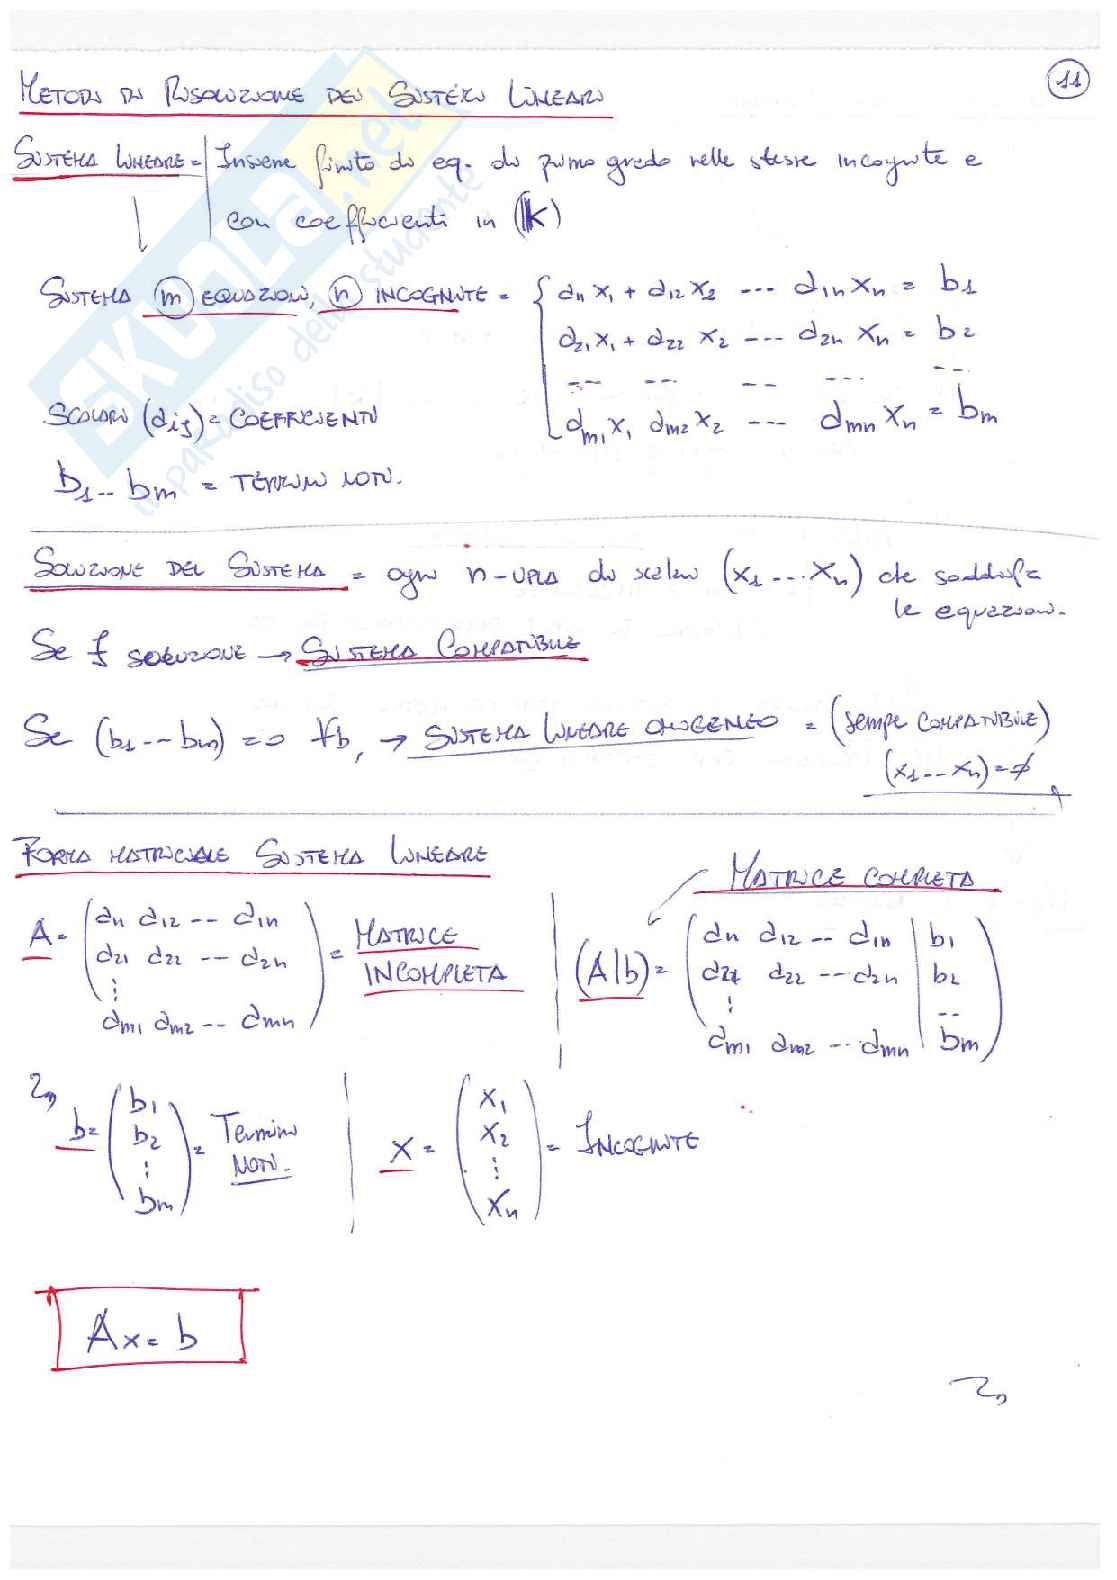 11
METODI DI RISOLUZIONE DEI SISTEMI LINEARI
SISTEMA LINEARE = Insieme finito di eq. di primo grado nelle stesse incognite e
con coefficienti in (K)
SISTEMA m EQUAZIONI, n INCOGNITE = { a11 x1 + a12 x2 --- a1n xn = b1
a21 x1 + a22 x2 --- a2n xn = b2
-- --- -- --- ---
am1 x1 am2 x2 --- amn xn = bm
SCALARI (aij) = COEFFICIENTI
b1-- bm = TERMINI NOTI.
SOLUZIONE DEL SISTEMA = ogni n-UPLA di scalari (x1 --- xn) che soddisfa
le equazioni.
Se ∃ SOLUZIONE → SISTEMA COMPATIBILE
Se (b1 -- bm) = 0 ∀b, → SISTEMA LINEARE OMOGENEO = (sempre COMPATIBILE)
(x1 -- xn) = ∅
FORMA MATRICIALE SISTEMA LINEARE
MATRICE COMPLETA
A = ( a11 a12 -- a1n ) = MATRICE INCOMPLETA
a21 a22 -- a2n
⋮
am1 am2 -- amn
(A|b) = ( a11 a12 -- a1n | b1 )
a21 a22 -- a2n | b2
⋮ --
am1 am2 -- amn | bm
b = ( b1 b2 ⋮ bm ) = Termini NOTI.
x = ( x1 x2 ⋮ xn ) = INCOGNITE
Ax = b
SKUOLA.net
il paradiso dello studente